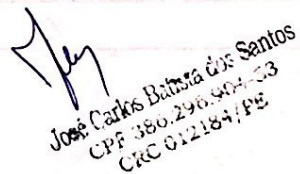 José Carlos Batista dos Santos
CPF 386.296.904-33
CRC 012184/PE